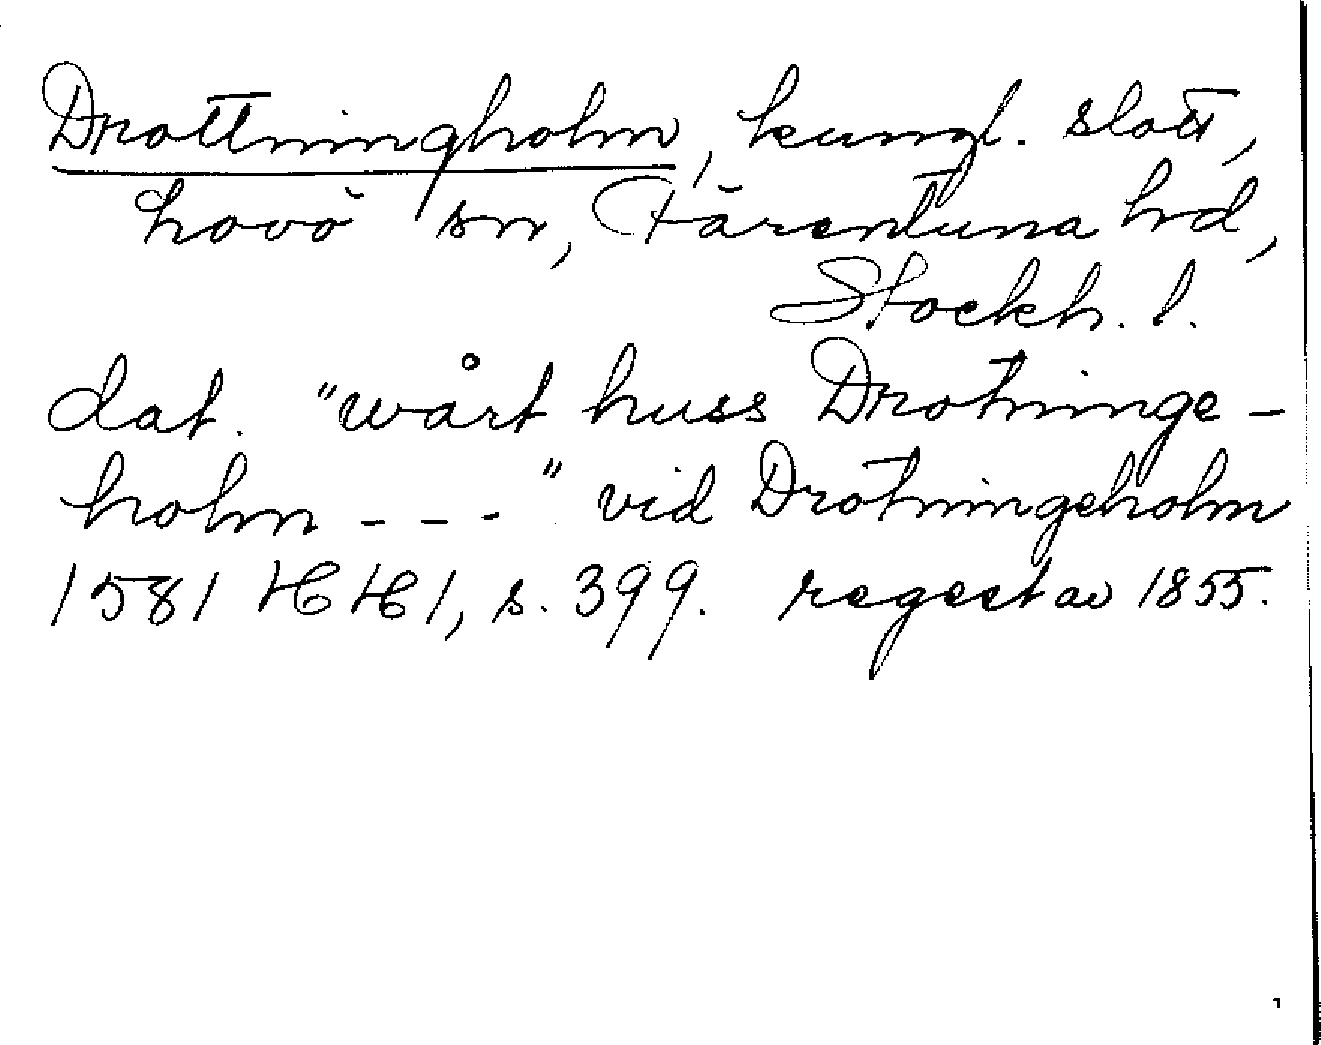 Drottningholm, kungl. slott,
Lovö sn, Färentuna hd,
Stockh. l.
dat. "wårt huss Drotninge-
holm - - - " vid Drotningeholm
1581 HH 1, s. 399. regest av 1855.
1